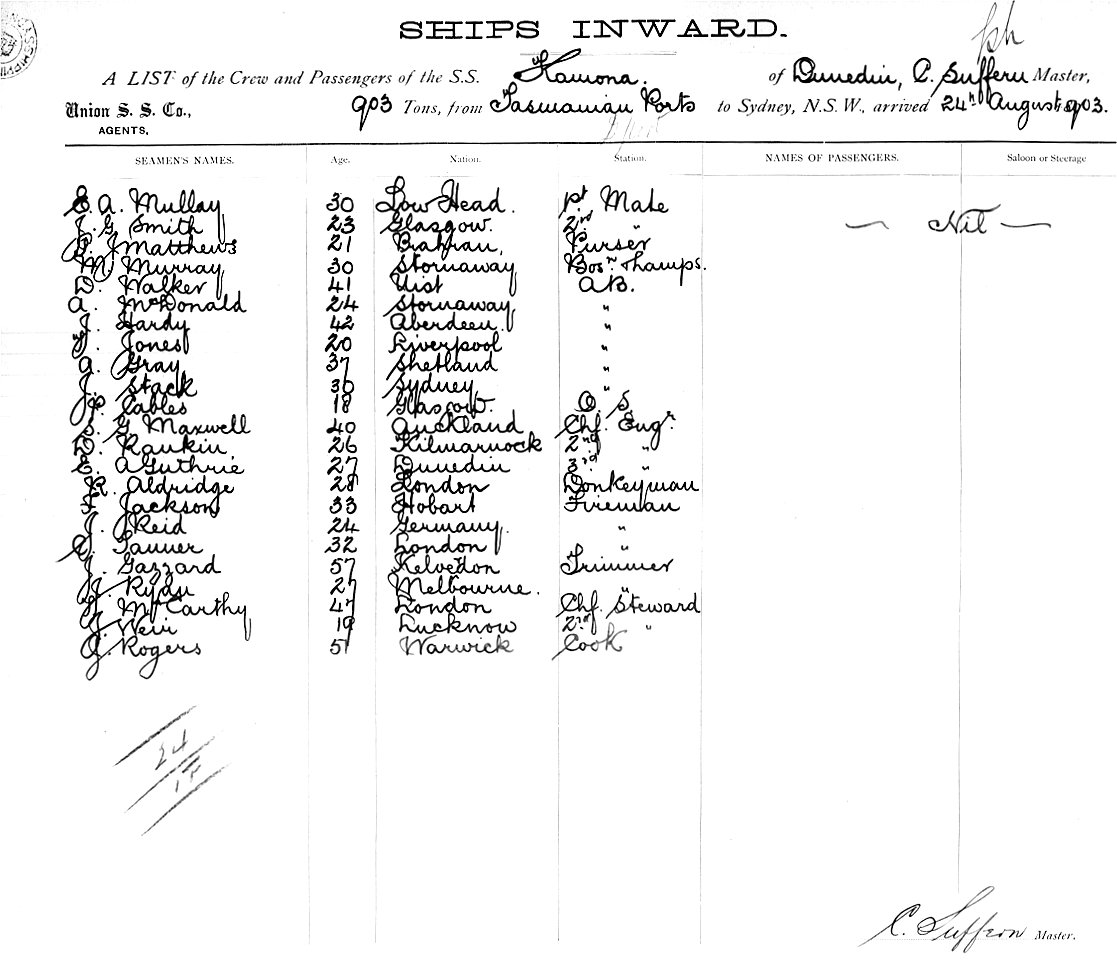 SHIPS INWARD.
A LIST of the Crew and Passengers of the S.S. Kamona. of Dunedin, C. Suffern Master,
Union S. S. Co., 903 Tons, from Tasmanian Ports to Sydney, N.S.W., arrived 24th August 1903.
AGENTS,
SEAMEN'S NAMES. Age. Nation. Station. NAMES OF PASSENGERS. Saloon or Steerage
E. A. Mullay 30 Low Head. 1st Mate
J. G Smith 23 Glasgow. 2nd " — Nil —
P. J Matthews 21 Prahran, Purser
M. Murray 30 Stornaway Bosn & Lamps.
D. Walker 41 Uist A.B.
A. McDonald 24 Stornaway "
J. Hardy 42 Aberdeen "
T. Jones 20 Liverpool "
A. Gray 37 Shetland "
J. Stack 30 Sydney "
J. P. Cables 18 Glasgow. O. S
S. G. Maxwell 40 Auckland Chf. Engr
D. Rankin 26 Kilmarnock 2nd "
E. A Guthrie 27 Dunedin 3rd "
R. Aldridge 28 London Donkeyman
F. Jackson 33 Hobart Fireman
J. Reid 24 Germany. "
C. Tanner 32 London "
J. Gazzard 57 Kelvedon Trimmer
J. Ryan 27 Melbourne. "
J. McCarthy 47 London Chf. Steward
J. Weir 19 Lucknow 2nd "
G. Rogers 51 Warwick Cook
24
C. Suffern Master.